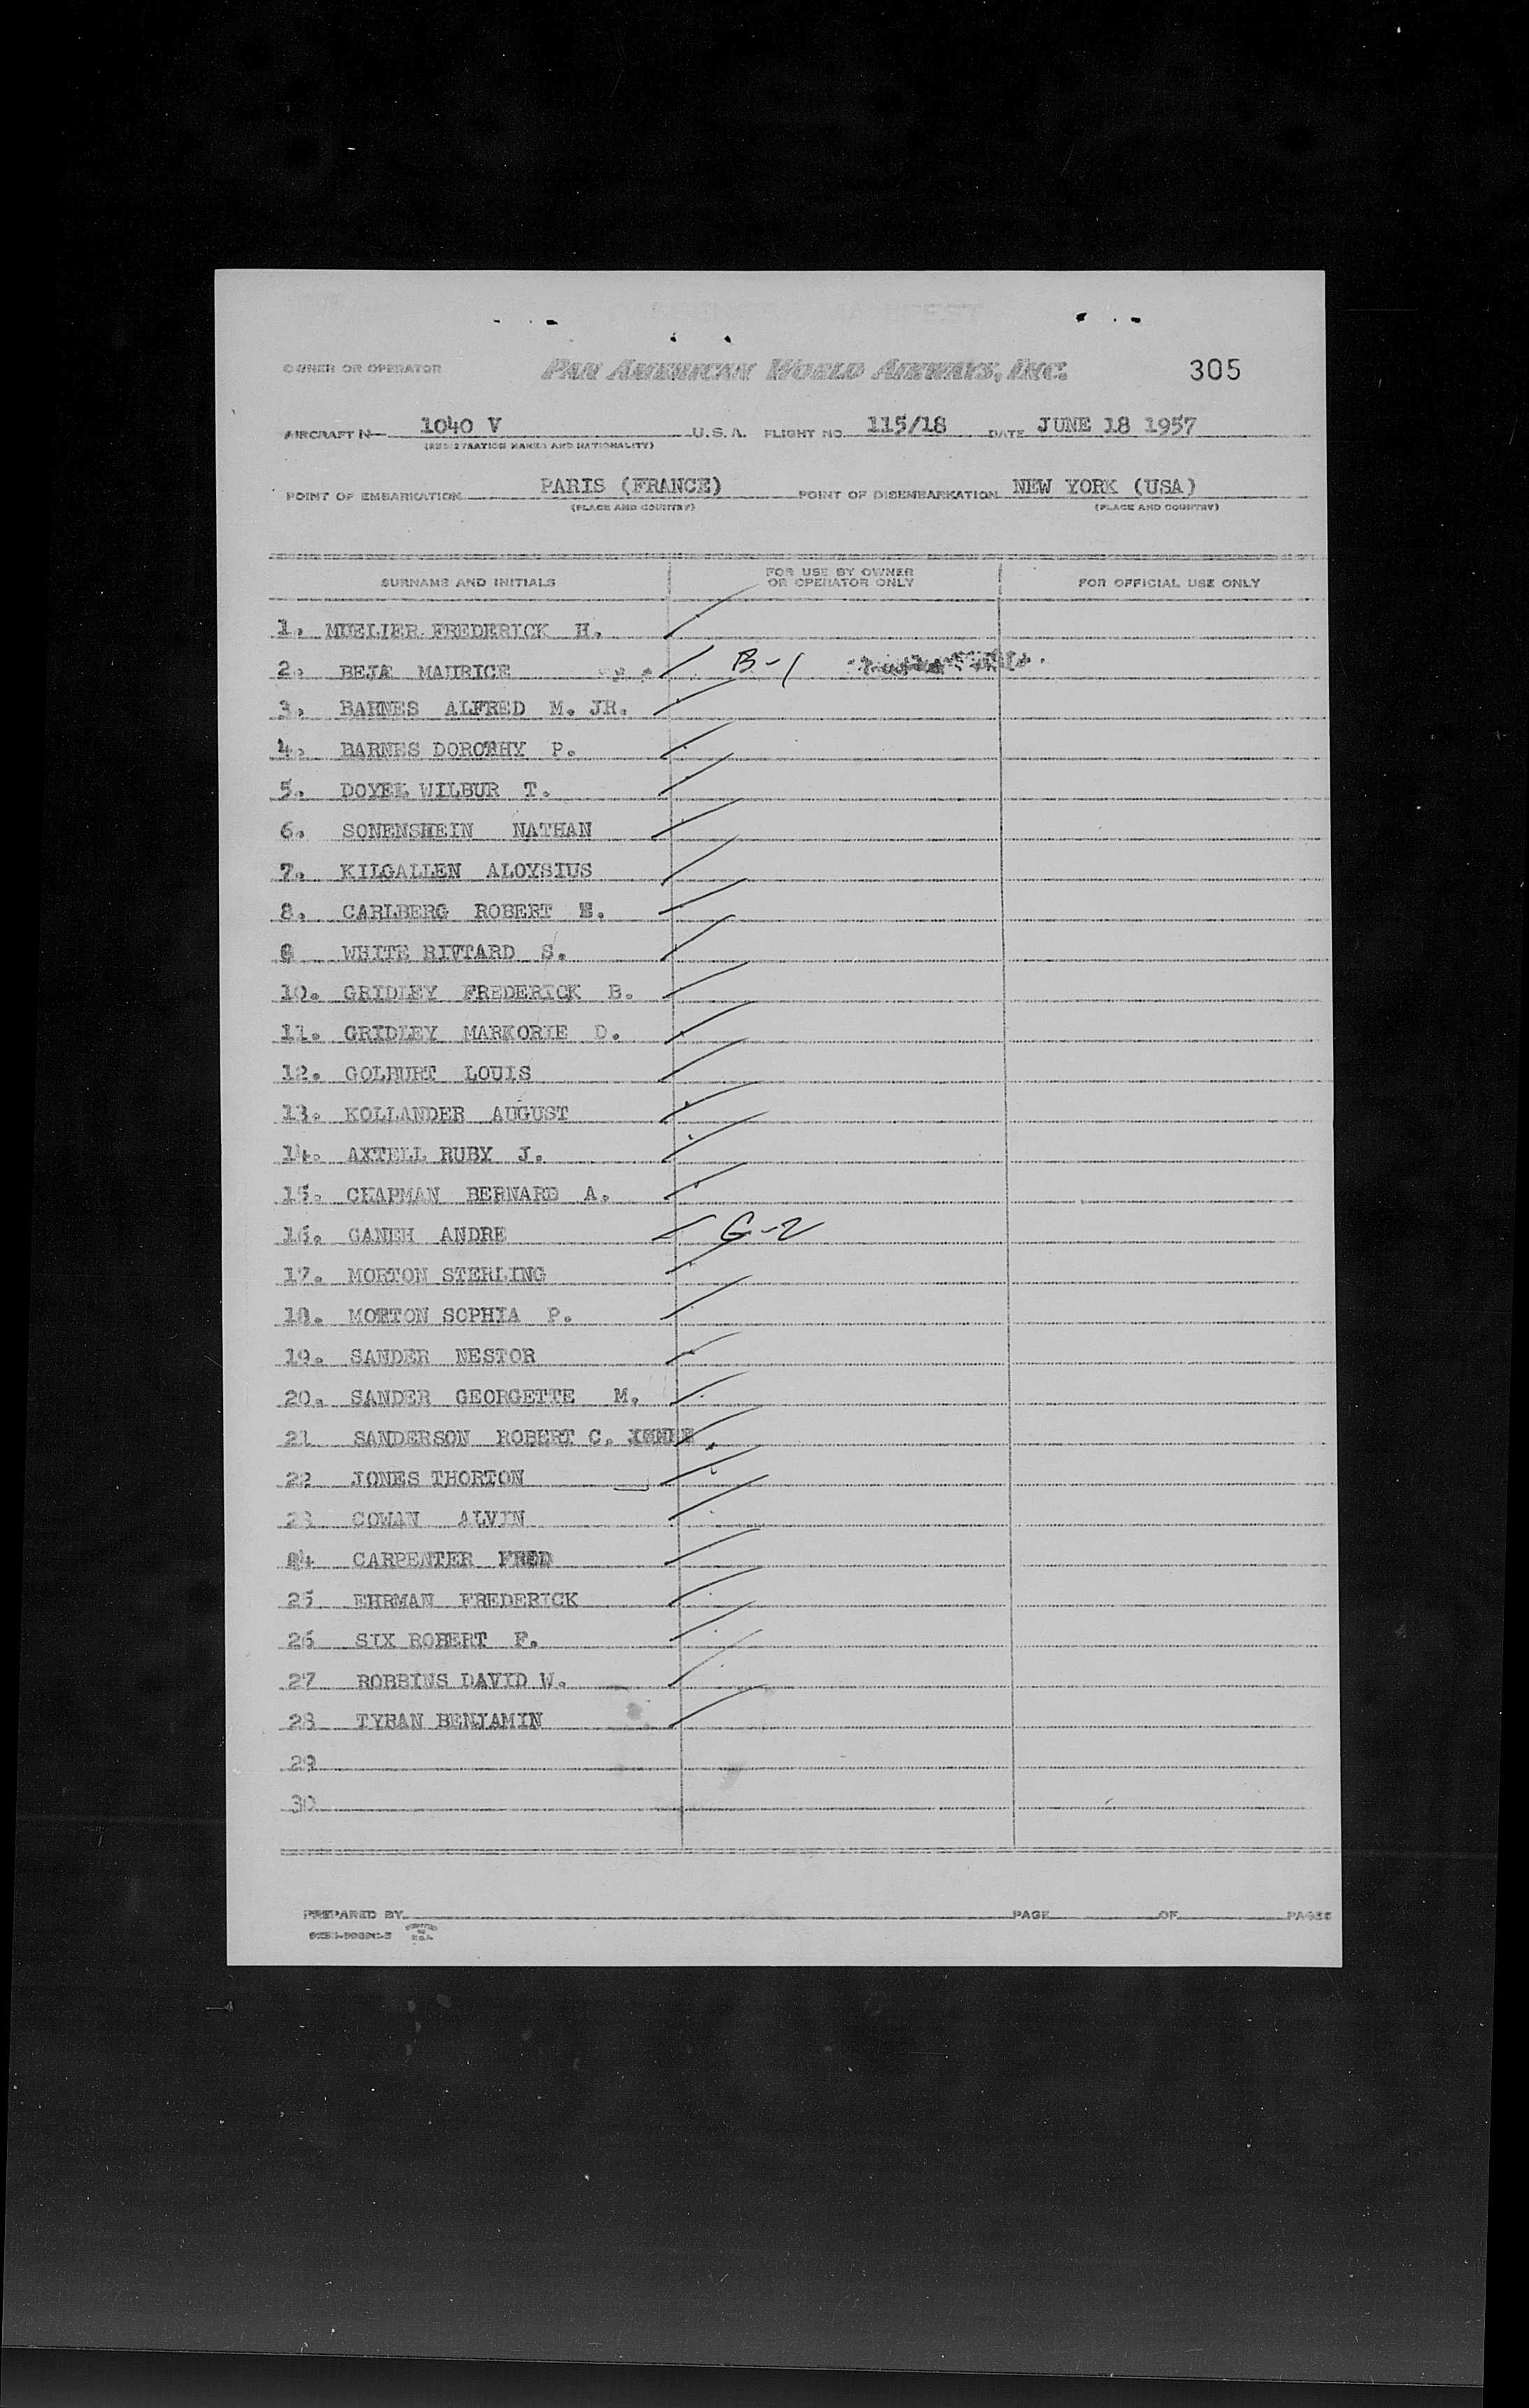 OWNER OR OPERATOR PAN AMERICAN WORLD AIRWAYS, INC. 305
AIRCRAFT N 1040 V U.S.A. FLIGHT NO. 115/18 DATE JUNE 18 1957
(REGISTRATION MARKS AND NATIONALITY)
POINT OF EMBARKATION PARIS (FRANCE) POINT OF DISEMBARKATION NEW YORK (USA)
(PLACE AND COUNTRY) (PLACE AND COUNTRY)
SURNAME AND INITIALS FOR USE BY OWNER OR OPERATOR ONLY FOR OFFICIAL USE ONLY
1. MUELLER FREDERICK H.
2. BEJA MAURICE B-1
3. BARNES ALFRED M. JR.
4. BARNES DOROTHY P.
5. DOYEL WILBUR T.
6. SONENSHEIN NATHAN
7. KILGALLEN ALOYSIUS
8. CARLBERG ROBERT E.
9 WHITE S.
10. GRIDLEY FREDERICK B.
11. GRIDLEY MARKORIE D.
12. GOLBURT LOUIS
13. KOLLANDER AUGUST
14. AXTELL RUBY J.
15. CHAPMAN BERNARD A.
16. GANEH ANDRE G-2
17. MORTON STERLING
18. MORTON SOPHIA P.
19. SANDER NESTOR
20. SANDER GEORGETTE M.
21 SANDERSON ROBERT C.
22 JONES THORTON
23 COWAN ALVIN
24 CARPENTER FRED
25 EHRMAN FREDERICK
26 SIX ROBERT F.
27 ROBBINS DAVID W.
28 TYRAN BENJAMIN
29
30
PREPARED BY PAGE OF PAGES